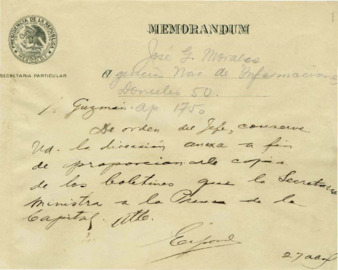 PRESIDENCIA DE LA REPUBLICA
MEMORANDUM
José G. Morales
SECRETARIA PARTICULAR
Agencia Nac de Informaciones
Donceles 50.
Guzmán. Ap 1750
De orden del Jefe, conserve
Ud. la dirección anexa a fin
de proporcionarle copia
de los boletines que la Secretaría
ministra a la Prensa de la
Capital. Atte.
27